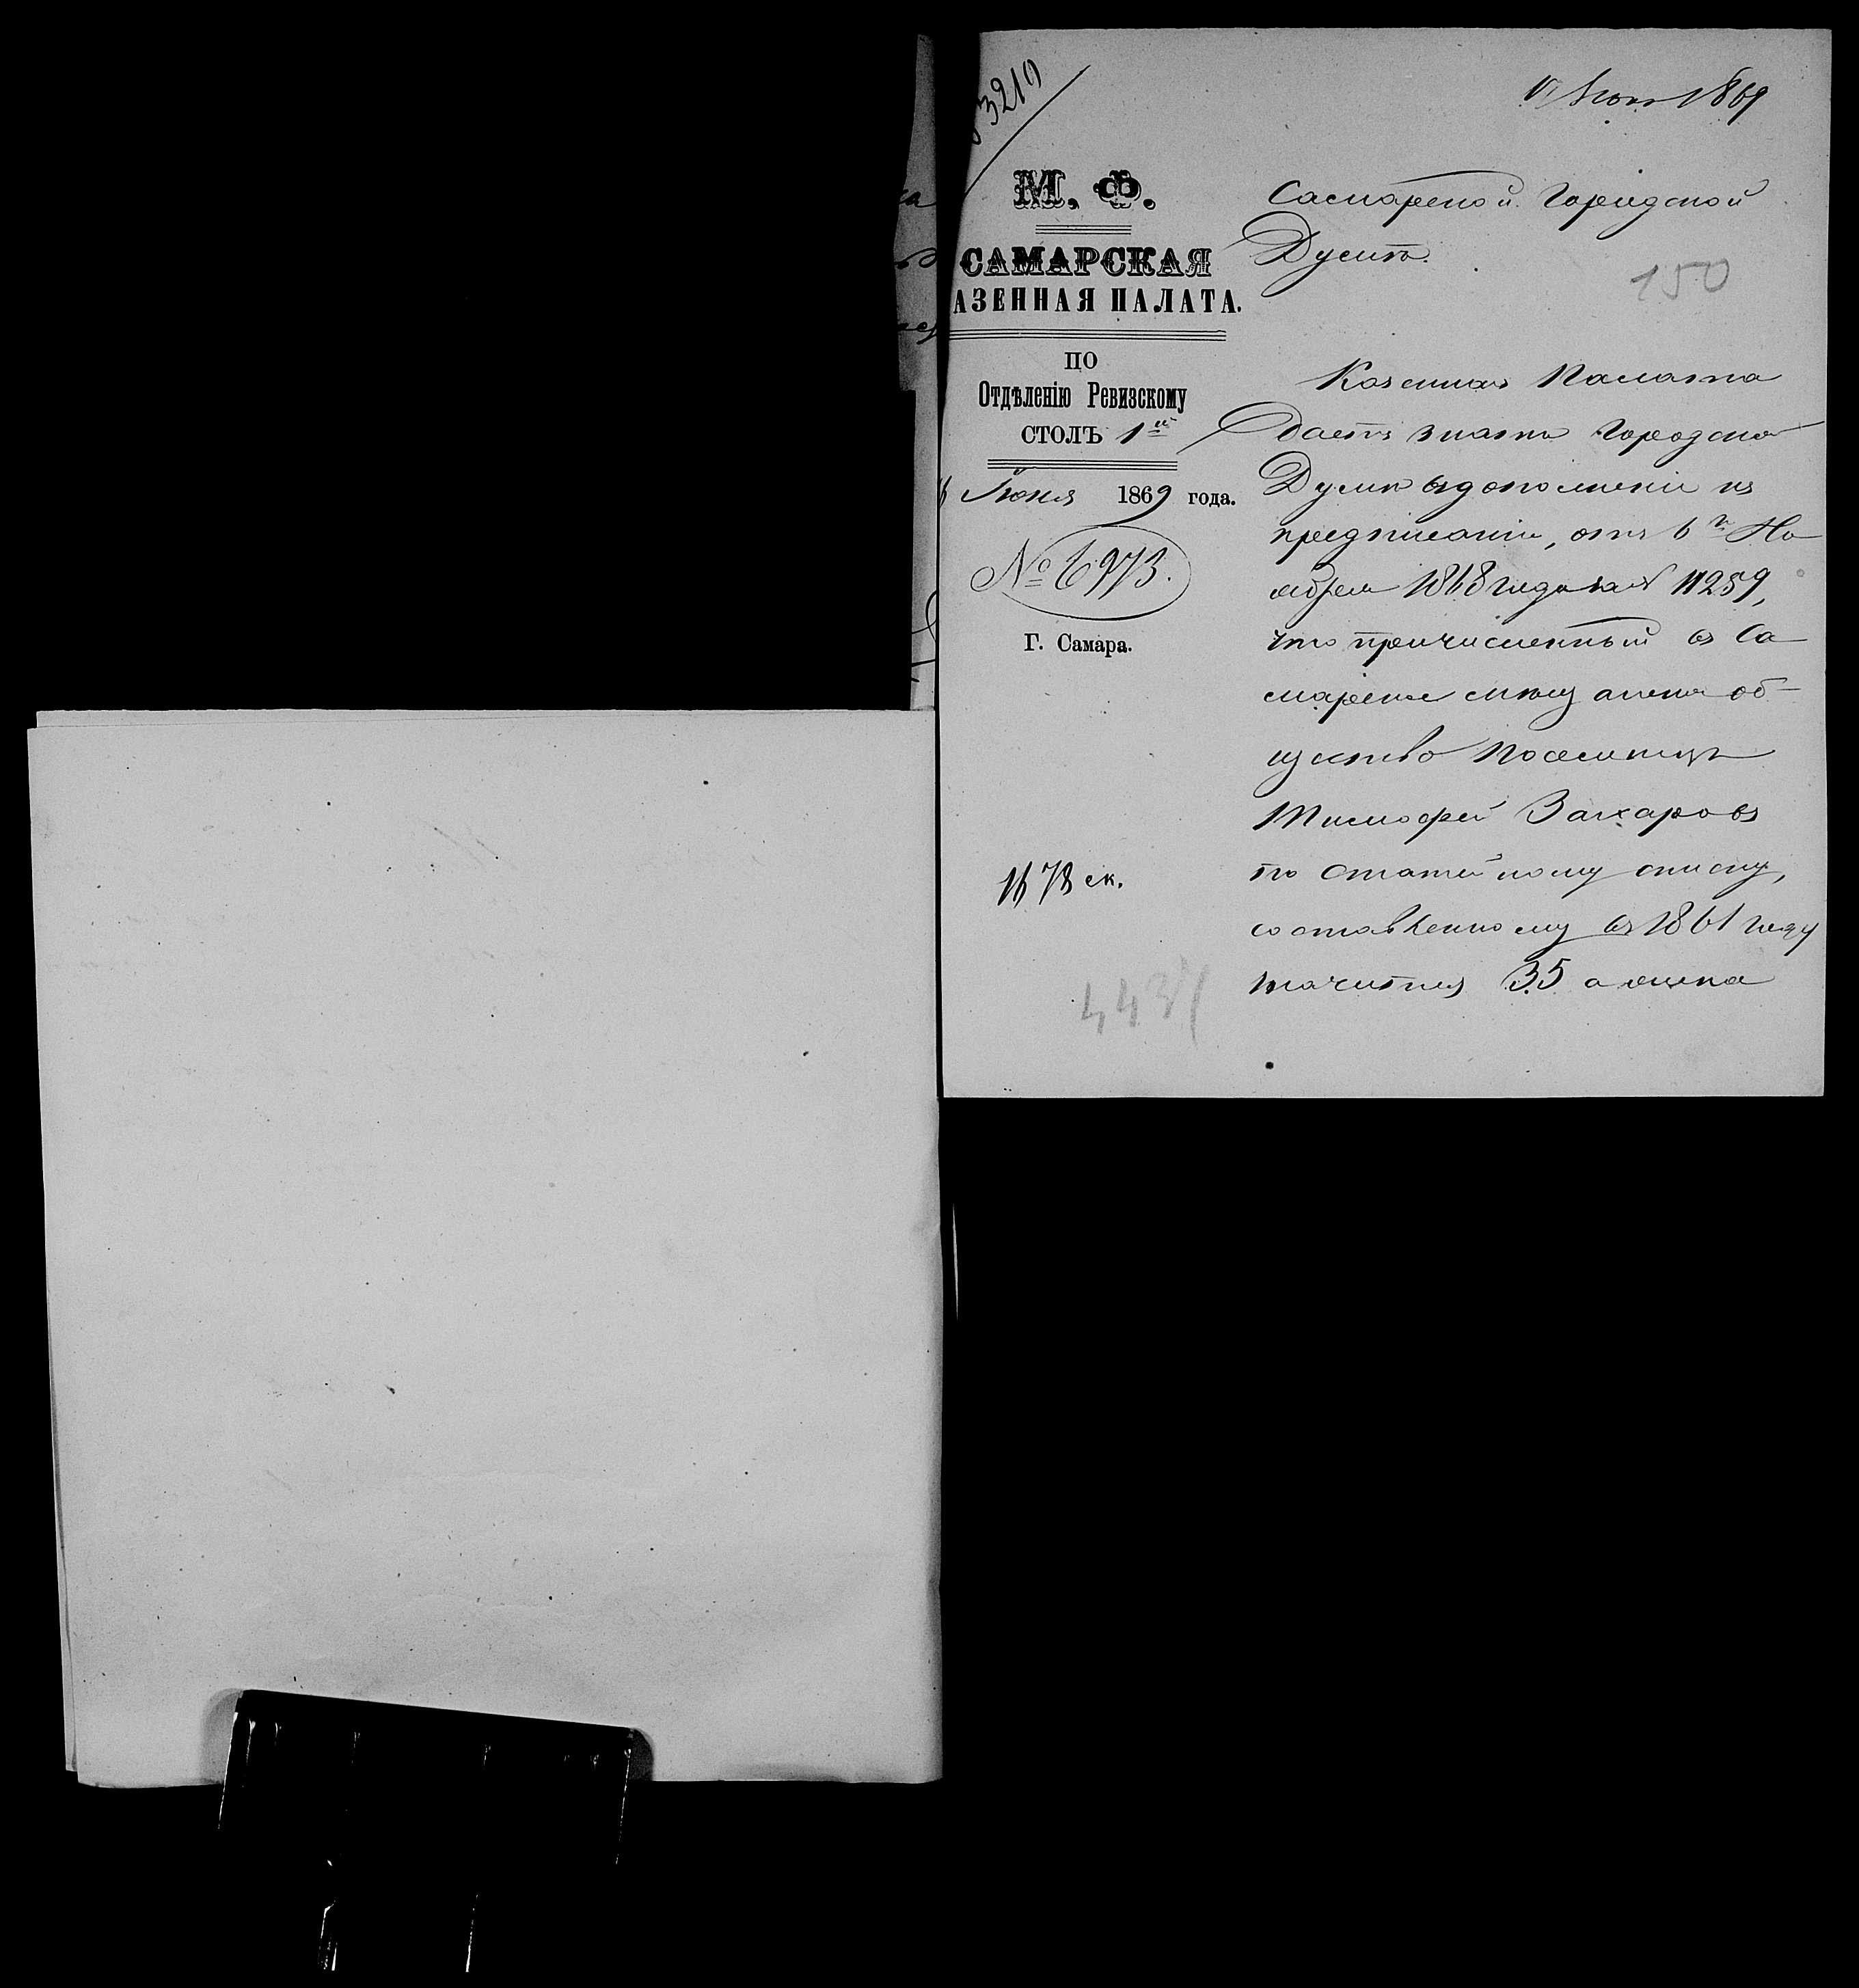 3219
М. Ф.
САМАРСКАЯ
АЗЕННАЯ ПАЛАТА.
ПО
Отдѣленію Ревизскому
СТОЛЪ 1й
Іюня 1869 года.
№ 6973.
Г. Самара.
1678 ск.
443
1869
Самарской Городской
Думѣ.
150
Казенная Палата
даетъ знать Городской
Думѣ въ дополненіи къ
предписанію, отъ 6го Но-
ября 1868 года за № 11259,
что причисленный въ Са-
марское мѣщанское об-
щество поселенецъ
Тимофей Захаровъ
по статейному списку,
составленному въ 1861 году
значится 35 а жена